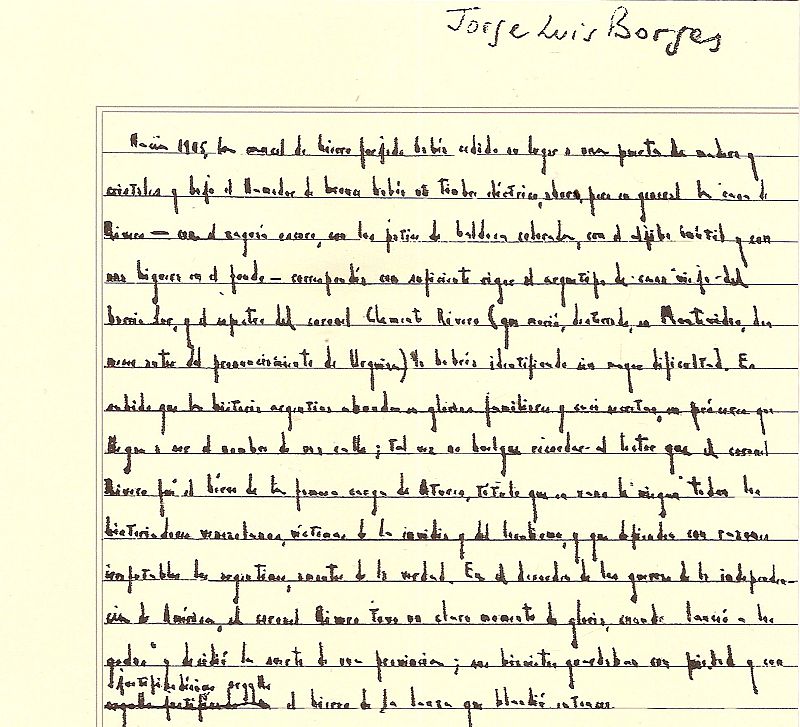 Jorge Luis Borges
Hacia 1905, la cancel de hierro forjado había cedido su lugar a una puerta de madera y
cristales y bajo el llamador de bronce había un timbre eléctrico, ahora, pero en general la casa de
Rivero — con el zaguán oscuro, con los patios de baldosa colorada, con el aljibe inútil y con
una higuera en el fondo — correspondía con suficiente rigor al arquetipo de casa vieja del
barrio Sur, y el espectro del coronel Clemente Rivero (que murió, desterrado, en Montevideo, dos
meses antes del pronunciamiento de Urquiza) la habría identificado sin mayor dificultad. Es
sabido que la historia argentina abunda en glorias familiares y casi secretas, en próceres que
llegan a ser el nombre de una calle; tal vez no huelgue recordar al lector que el coronel
Rivero fué el héroe de la famosa carga de título que en vano le niegan todos los
historiadores venezolanos, víctimas de la envidia y del localismo, y que defienden con razones
irrefutables los argentinos, amantes de la verdad. En el desorden de las guerras de la independen-
cia de América, el coronel Rivero tuvo un claro momento de gloria, cuando lanceó a los
godos y decidió la suerte de una provincia; sus biznietos guardaban con piedad y con
orgullo
el hierro de la lanza que blandió entonces.